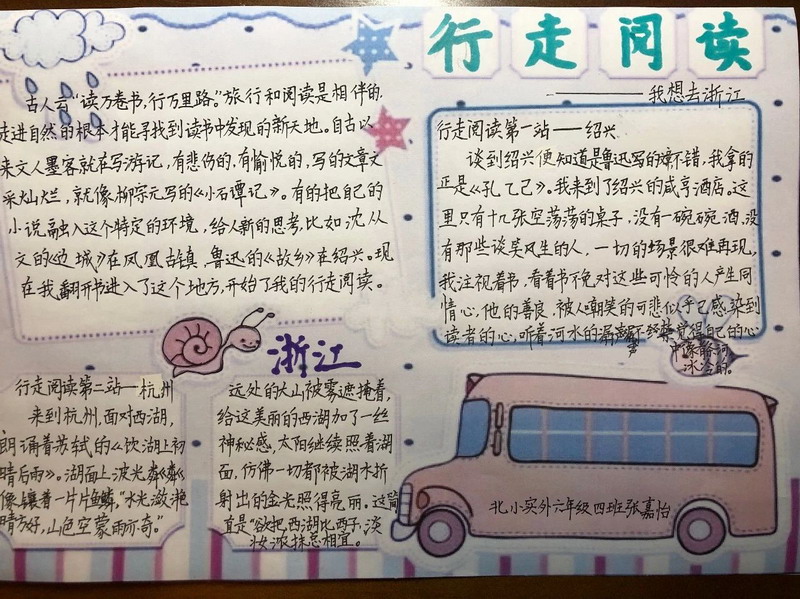 行走阅读
——我想去浙江
古人云“读万卷书,行万里路。”旅行和阅读是相伴的,
走进自然的根本才能寻找到读书中发现的新天地。自古以
来文人墨客就在写游记,有悲伤的,有愉悦的,写的文章文
采灿烂,就像柳宗元写的《小石谭记》。有的把自己的
小说融入这个特定的环境,给人新的思考,比如沈从
文的《边城》在凤凰古镇,鲁迅的《故乡》在绍兴。现
在我翻开书进入了这个地方,开始了我的行走阅读。
行走阅读第一站——绍兴
谈到绍兴便知道是鲁迅写的嘛不错,我拿的
正是《孔乙己》。我来到了绍兴的咸亨酒店。这
里只有十几张空荡荡的桌子,没有一碗碗酒,没
有那些谈笑风生的人,一切的场景很难再现,
我注视着书,看着书不免对这些可怜的人产生同
情心,他的善良,被人嘲笑的可悲似乎已感染到
读者的心,听着河水的潺潺声不经意觉得自己的心
中像静河
冰冷的。
浙江
行走阅读第二站—杭州
来到杭州,面对西湖,
朗诵着苏轼的《饮湖上初
晴后雨》。湖面上,波光粼粼
像镶着一片片鱼鳞,“水光潋滟
晴方好,山色空蒙雨亦奇。”
远处的大山被雾遮掩着,
给这美丽的西湖加了一丝
神秘感,太阳继续照着湖
面,仿佛一切都被湖水折
射出的金光照得亮丽,这简
直是“欲把西湖比西子,淡
妆浓抹总相宜。
北小实外六年级四班张嘉怡